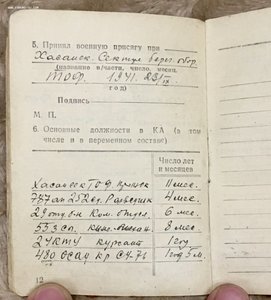 5. Принял военную присягу при
Хасанск. Сектор берег. обор.
(название в/части, число, месяц,
ТОФ. 1941. 23/IX
год)
Подпись
М. П.
6. Основные должности в КА (в том
числе и в переменном составе)
Число лет
и месяцев
Хасанск ТОФ 11 мес.
757 ап 252 сд. Разведчик 4 мес.
29 отд. б-н Ком. Отдел. 6 мес.
553 сп. 8 мес.
2 КТУ курсант 1 год
480 ОСАД кр СУ-76 1 год 5 м.
12